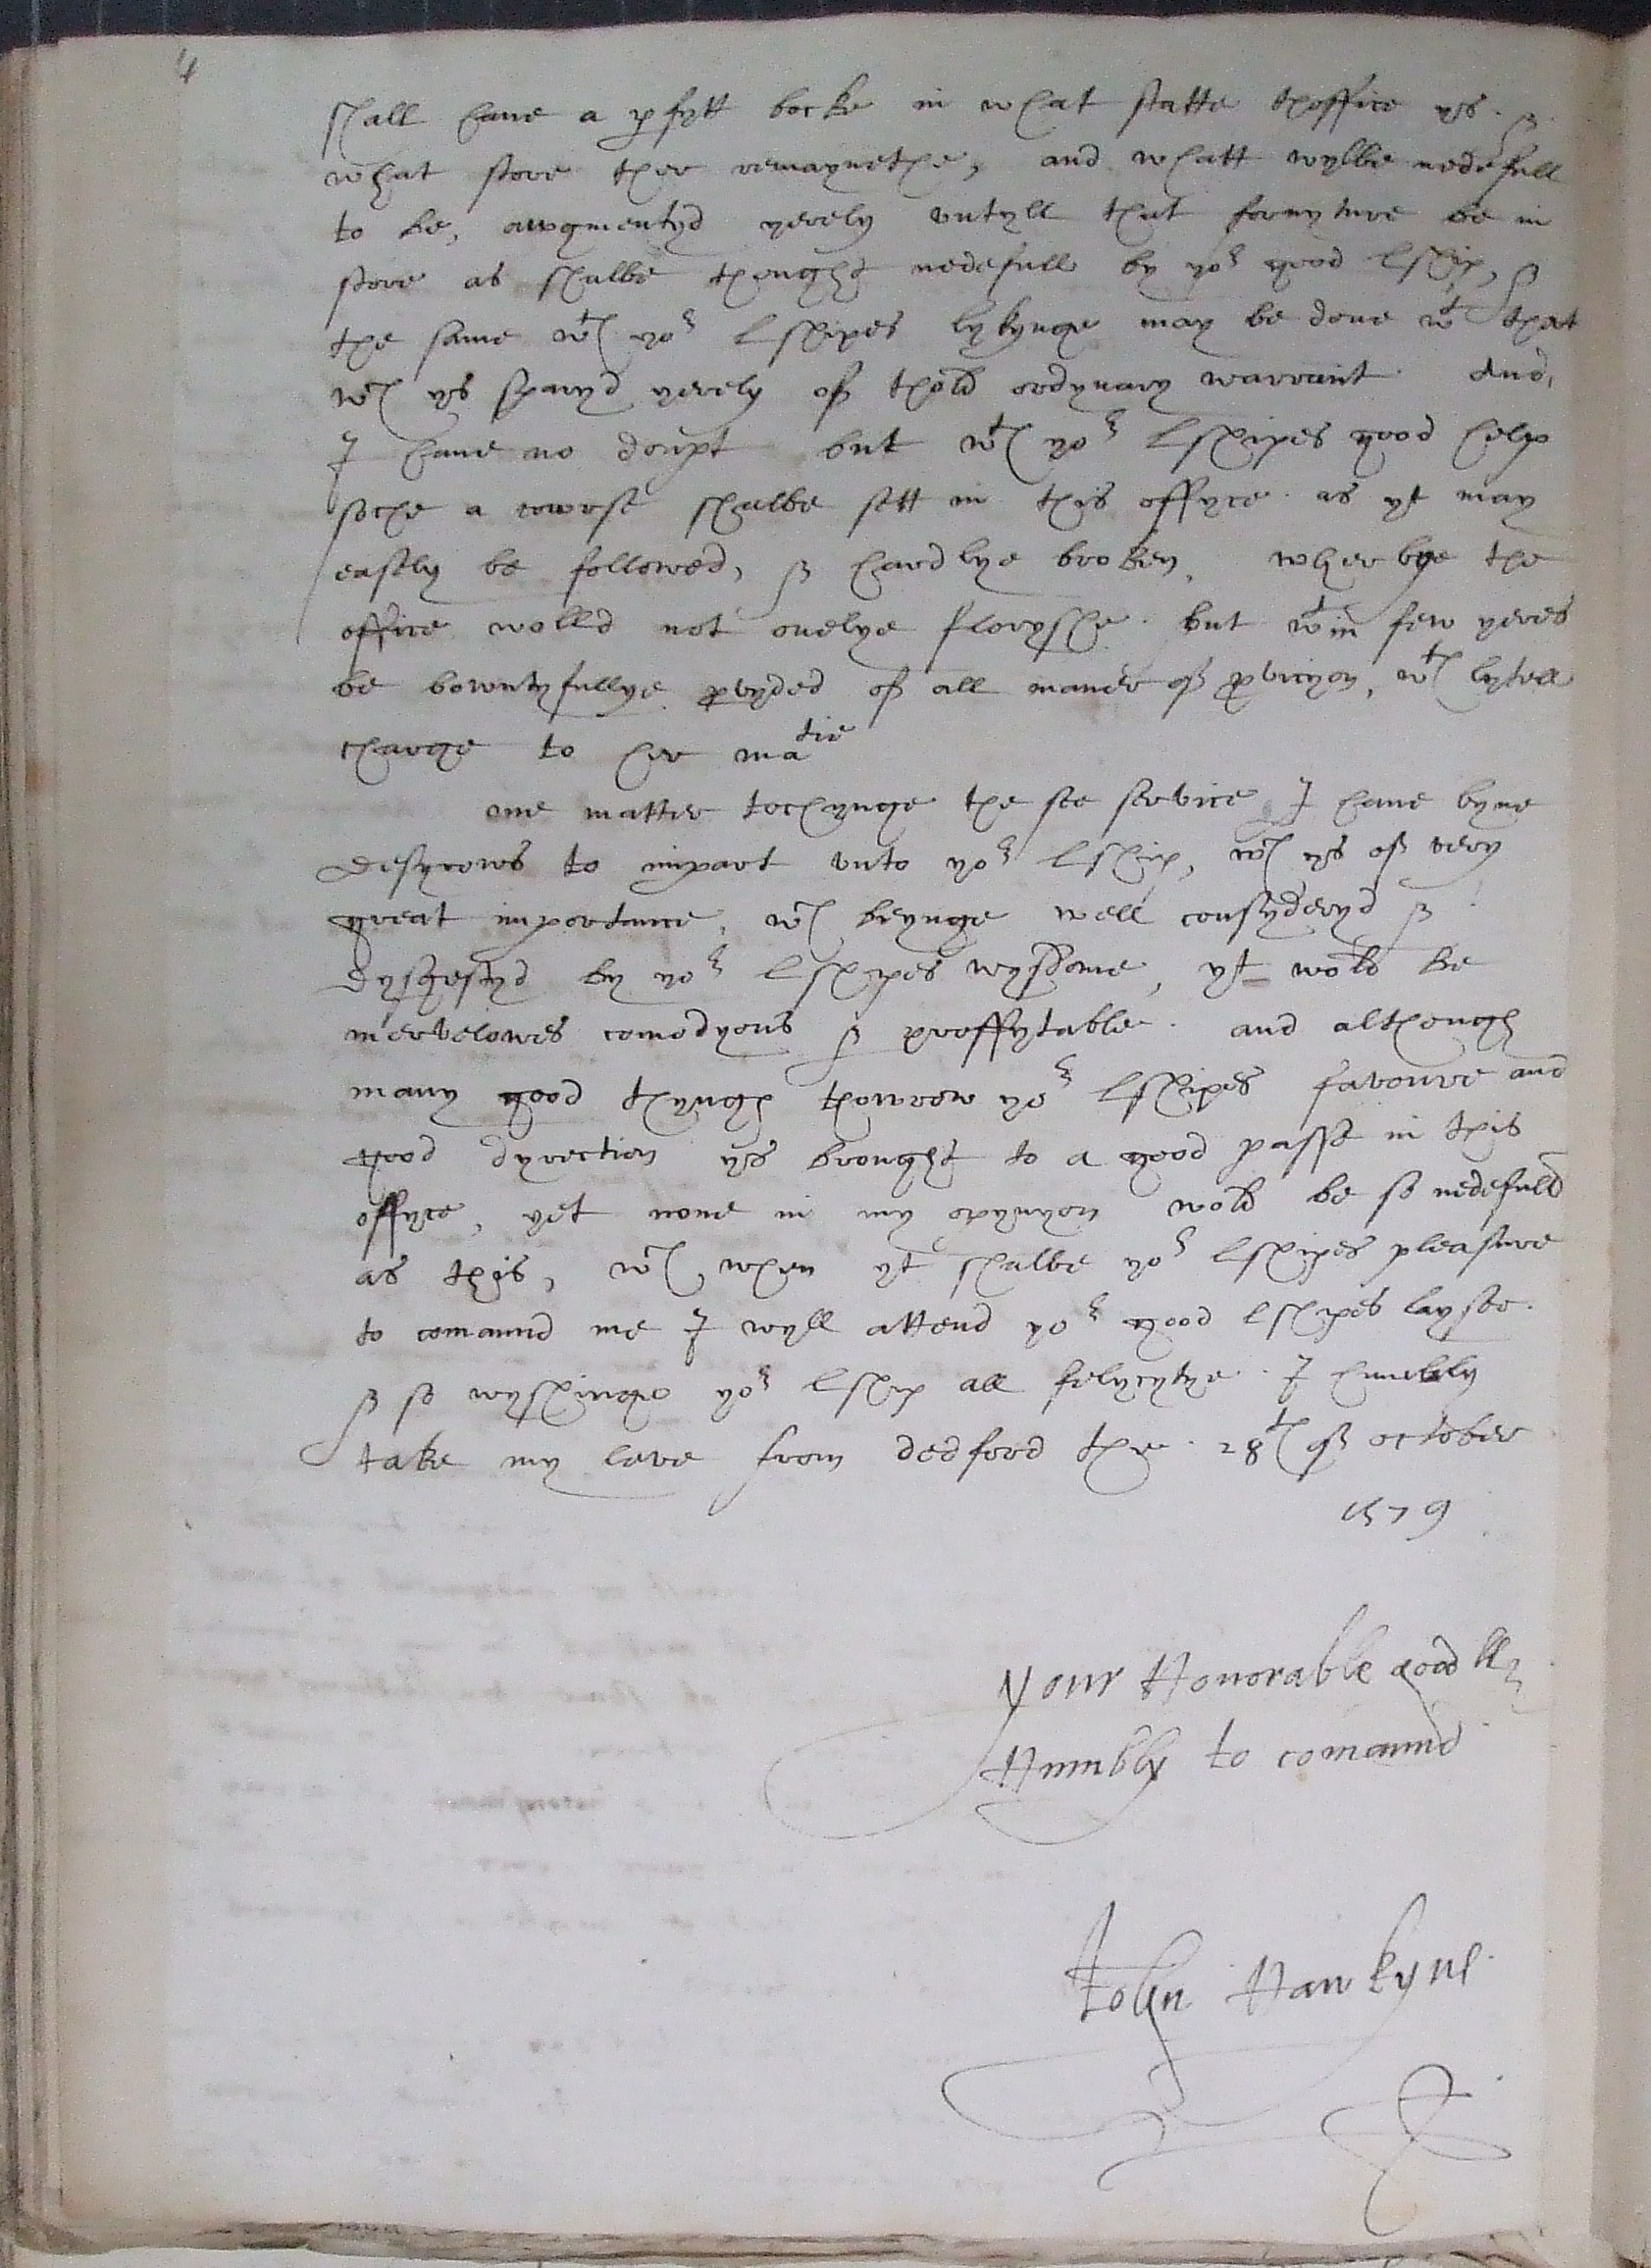 4
shall haue a pfytt bocke in what statte thoffice ys. &
what store ther remaynethe, and whatt wylbe nedefull
to be, awgmentyd yerely vntyll that fornyture be in
store as shalbe thought nedefull by yor good Lship, &
the same wch yor Lshipes lykynge may be done wt that
wch ys sparyd yerely of thold ordynary warrant. And,
I haue no doupt but wth yor Lshipes good help
soche a cowrse shalbe sett in this offyce. as yt may
easely be followed, & hardlye broken, wherbye the
office wolld not onelye floryshe. but wtin few yeres
be bowntyfullye pvyded of all maner of pvicyon, wth lytell
charge to her matie
one matter tochynge the see service I haue byne
desyrows to impart vnto yor Lship, wch ys of very
great importance, wch beynge well consyderyd &
dysgestyd by yor Lshipes wysdome, yt wold be
mervelowes comodyous & proffytable. and although
many good thyngs thorrow yor Lshipes favoure and
good dyrection ys brought to a good passe in this
offyce, yet none in my opynyon wold be so nedefull
as this, wch when yt shalbe yor Lshipes pleasure
to comaund me I wyll attend yor good Lshipes layser.
& so wyshinge yor Lship all felycytye. I humbly
take my leve from dedford the. 28th of october
1579
Your Honorable good ll
Humbly to comaund
John Hawkyns